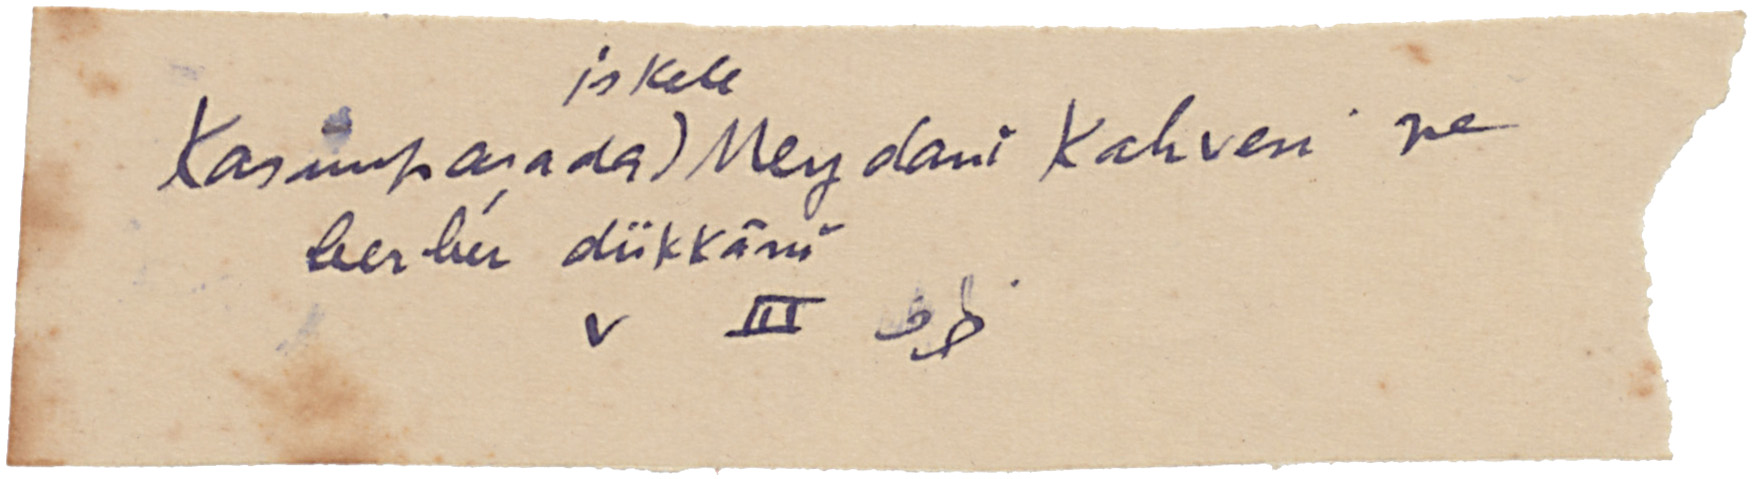 iskele
Kasımpaşada) Meydanı Kahvesi ve
berber dükkânı
v III